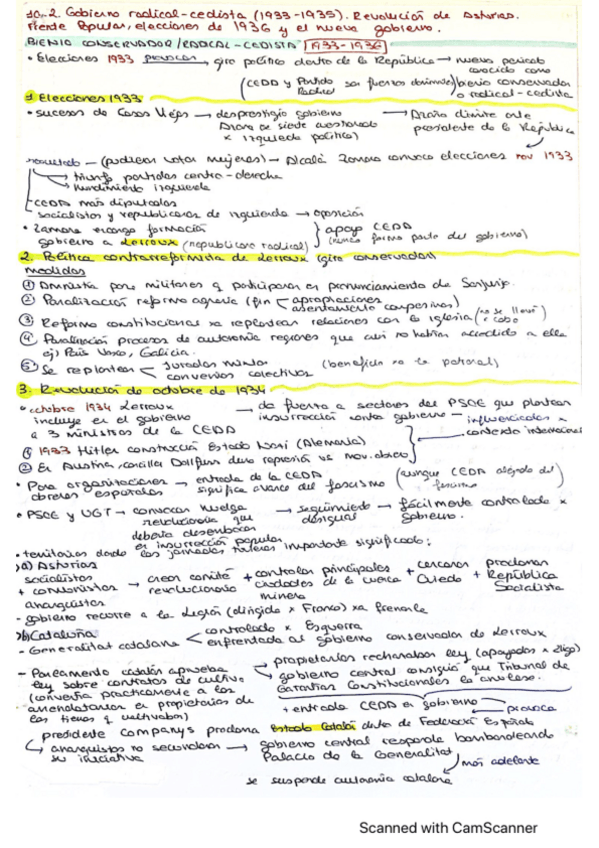 10.2. Gobierno radical-cedista (1933-1935). Revolución de Asturias.
Frente Popular, elecciones de 1936 y el nuevo gobierno.
BIENIO CONSERVADOR/RADICAL-CEDISTA 1933-1936
• Elecciones 1933 provocan giro político dentro de la República → nuevo periodo conocido como
(CEDA y Partido Radical son fuerzas dominantes) bienio conservador o radical-cedista
1 Elecciones 1933
• sucesos de Casas Viejas → desprestigio gobierno → Azaña dimite ante
Azaña se siente cuestionado x izquierda política) presidente de la República
resultado — (pudieron votar mujeres) — Alcalá Zamora convoca elecciones nov 1933
→ triunfo partidos centro-derecha
→ hundimiento izquierda
- CEDA más diputados
socialistas y republicanos de izquierda → oposición
• Zamora encarga formación
gobierno a Lerroux (republicano radical) } apoyo CEDA
(nunca formó parte del gobierno)
2. Política contrarreformista de Lerroux (giro conservador)
medidas
① Amnistía para militares q participaron en pronunciamiento de Sanjurjo.
② Paralización reforma agraria (fin < apropiaciones
asentamiento campesinos)
③ Reforma constitucional xa replantear relaciones con la iglesia (no se llevó a cabo)
④ Paralización proceso de autonomía regiones que aún no habían accedido a ella
ej) País Vasco, Galicia.
⑤ Se replantean < jurados mixtos (beneficio xa la patronal)
convenios colectivos
3. Revolución de octubre de 1934
• octubre 1934 Lerroux → da fuerza a sectores del PSOE que plantean
incluye en el gobierno insurrección contra gobierno — influenciados x
a 3 ministros de la CEDA contexto internacional
① 1933 Hitler construcción Estado Nazi (Alemania)
② En Austria, canciller Dollfuss dura represión vs mov. obrero
• Para organizaciones — entrada de la CEDA (aunque CEDA alejada del fascismo)
obreras españolas significa avance del fascismo
• PSOE y UGT → convocan huelga → seguimiento → fácilmente controlada x
revolucionaria que desigual gobierno.
debería desembocar
en insurrección popular
• territorios donde las jornadas tuvieron importante significado:
a) Asturias
socialistas → crean comité + controlan principales + cercaron + proclaman
+ comunistas revolucionario ciudades de la cuenca Oviedo República
anarquistas minera Socialista
- gobierno recurre a la Legión (dirigida x Franco) xa frenarla
b) Cataluña
- Generalitat catalana < controlada x Esquerra
enfrentada al gobierno conservador de Lerroux
- Parlamento catalán aprueba → propietarios rechazaban ley (apoyados x
ley sobre contratos de cultivo → gobierno central consiguió que Tribunal de
(convertía prácticamente a los Garantías Constitucionales la anulase.
arrendatarios en propietarios de
las tierras q cultivaban) + entrada CEDA en gobierno → provoca
presidente Companys proclama Estado Catalán dentro de Federación Española
↳ anarquistas no secundaron → gobierno central responde bombardeando
su iniciativa Palacio de la Generalitat
más adelante
se suspende autonomía catalana
Scanned with CamScanner